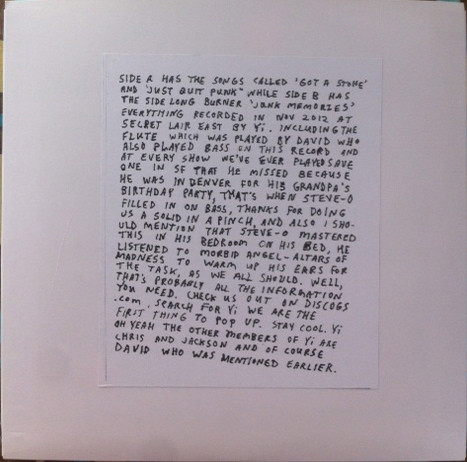 SIDE A HAS THE SONGS CALLED 'GOT A STONE'
AND 'JUST QUIT PUNK' WHILE SIDE B HAS
THE SIDE LONG BURNER 'JUNK MEMORIES'
EVERYTHING RECORDED IN NOV 2012 AT
SECRET LAIR EAST BY Yi. INCLUDING THE
FLUTE WHICH WAS PLAYED BY DAVID WHO
ALSO PLAYED BASS ON THIS RECORD AND
AT EVERY SHOW WE'VE EVER PLAYED SAVE
ONE IN SF THAT HE MISSED BECAUSE
HE WAS IN DENVER FOR HIS GRANDPA'S
BIRTHDAY PARTY, THAT'S WHEN STEVE-O
FILLED IN ON BASS, THANKS FOR DOING
US A SOLID IN A PINCH, AND ALSO I SHO-
ULD MENTION THAT STEVE-O MASTERED
THIS IN HIS BEDROOM ON HIS BED, HE
LISTENED TO MORBID ANGEL-ALTARS OF
MADNESS TO WARM UP HIS EARS FOR
THE TASK, AS WE ALL SHOULD. WELL,
THAT'S PROBABLY ALL THE INFORMATION
YOU NEED. CHECK US OUT ON DISCOGS
.COM. SEARCH FOR Yi WE ARE THE
FIRST THING TO POP UP. STAY COOL. Yi
OH YEAH THE OTHER MEMBERS OF Yi ARE
CHRIS AND JACKSON AND OF COURSE
DAVID WHO WAS MENTIONED EARLIER.